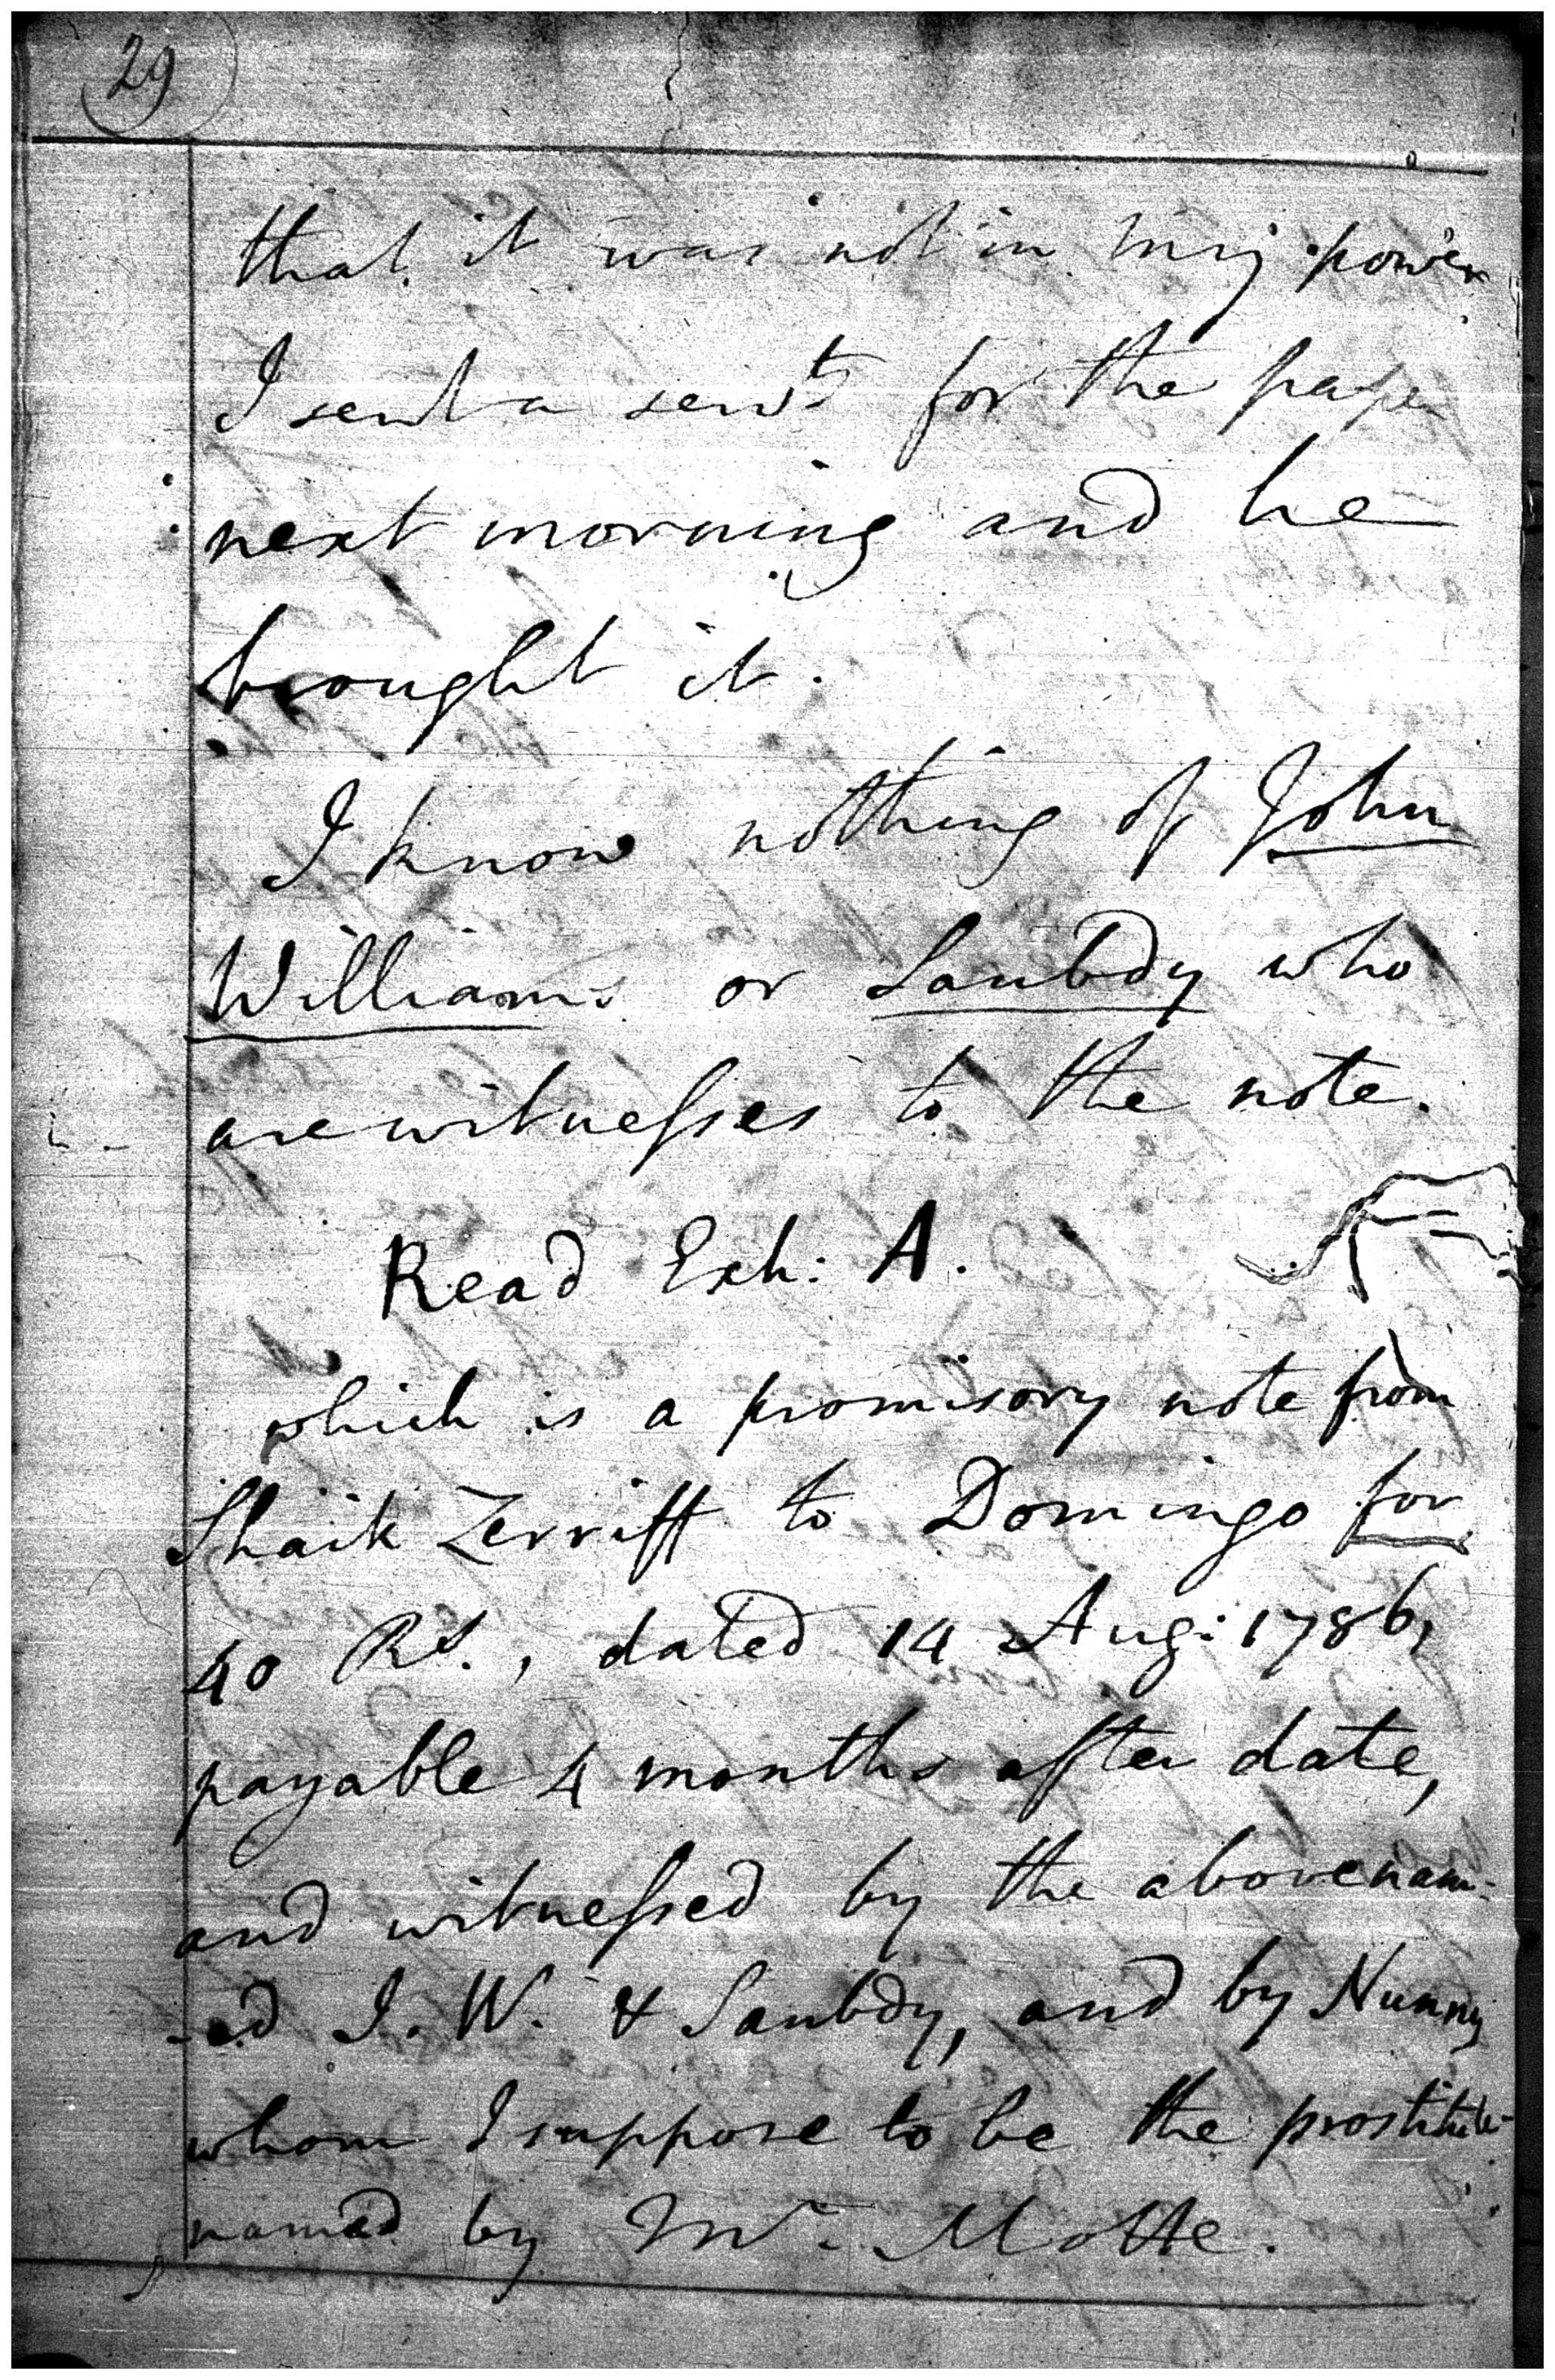 29
that it was not in my power
I sent a serv.t for the paper
next morning and he
brought it.
I know nothing of John
Williams or Saubdy who
are witnesses to the note.
Read Exh: A.
which is a promisory note from
Shaik Zerriff to Domingo for
40 Rs., dated 14 Aug: 1786,
payable 4 months after date,
and witnessed by the abovenam-
-ed J. W. & Saubdy, and by Nunny
whom I suppose to be the prostitute
named by Mr. Motte.